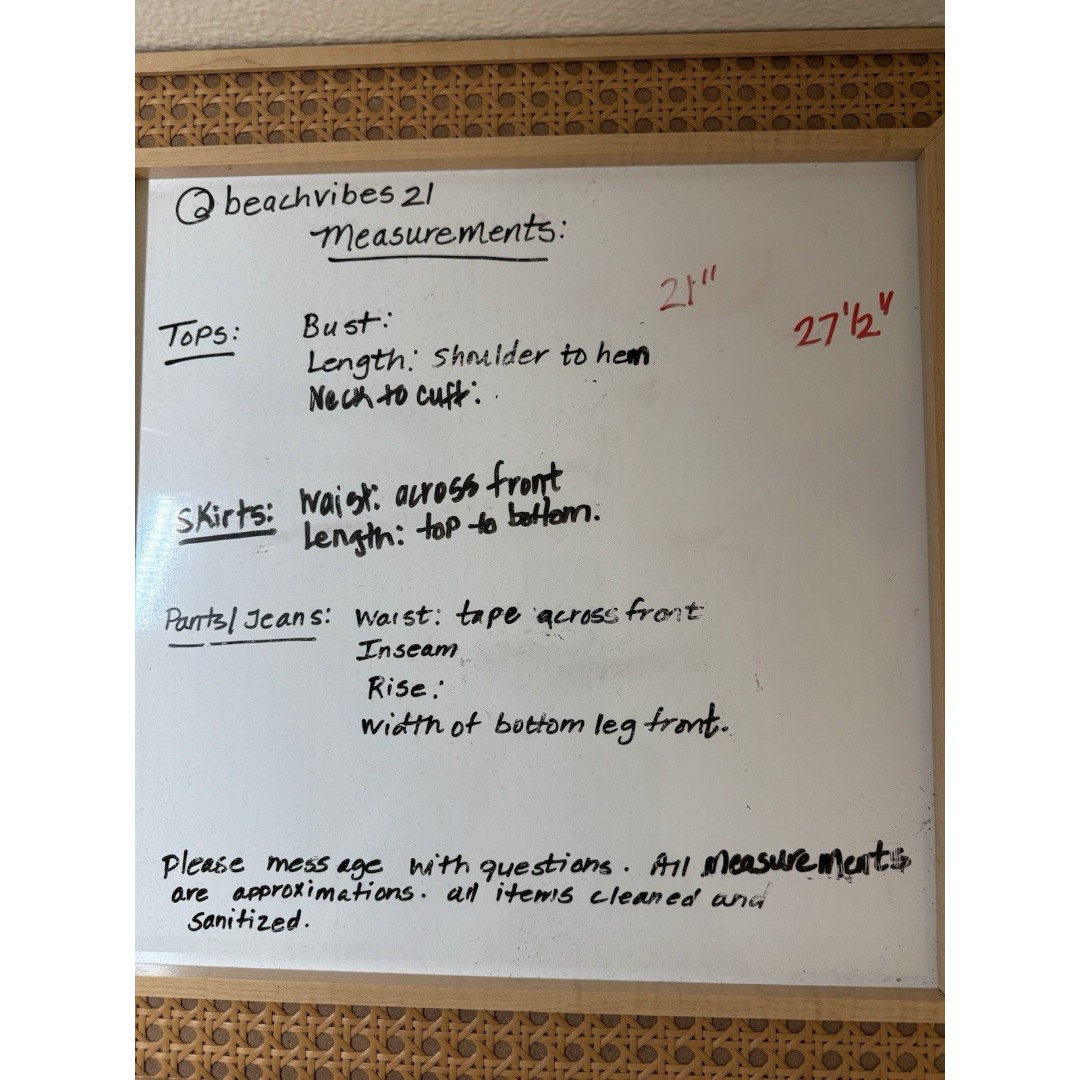 @beachvibes21
Measurements:
21"
27 1/2"
Tops: Bust:
Length: Shoulder to hem
Neck to cuff:
Skirts: Waist: across front
Length: top to bottom.
Pants/Jeans: Waist: tape across front
Inseam
Rise:
Width of bottom leg front.
Please message with questions. All Measurements
are approximations. all items cleaned and
sanitized.